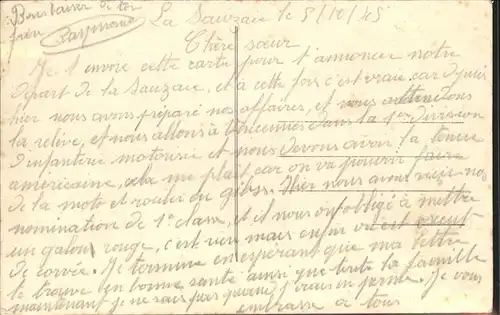 Bons baisers de ton
frère
Raymond
La Sauzaie le 5/10/45
Chère sœur
Je t'envoie cette carte pour t'annoncer notre
départ de la Sauzaie, et à cette fois c'est vraie car depuis
hier nous avons préparé nos affaires, et nous attendons
la relève, et nous allons à Vincennes dans la 1er division
d'infanterie motorisée et nous devons avoir la tenue
américaine, cela me plait, car on va pouvoir faire
de la moto et rouler du Hier nous avons reçu nos
nomination de 1e classe et il nous ont obligé à mettre
un galon rouge, c'est rien mais enfin on est exempt
de corvée. Je termine en espérant que ma lettre
te trouve en bonne santé ainsi que toute la famille
maintenant je ne sais pas quand j'irais en perme. Je vous
embrasse à tous